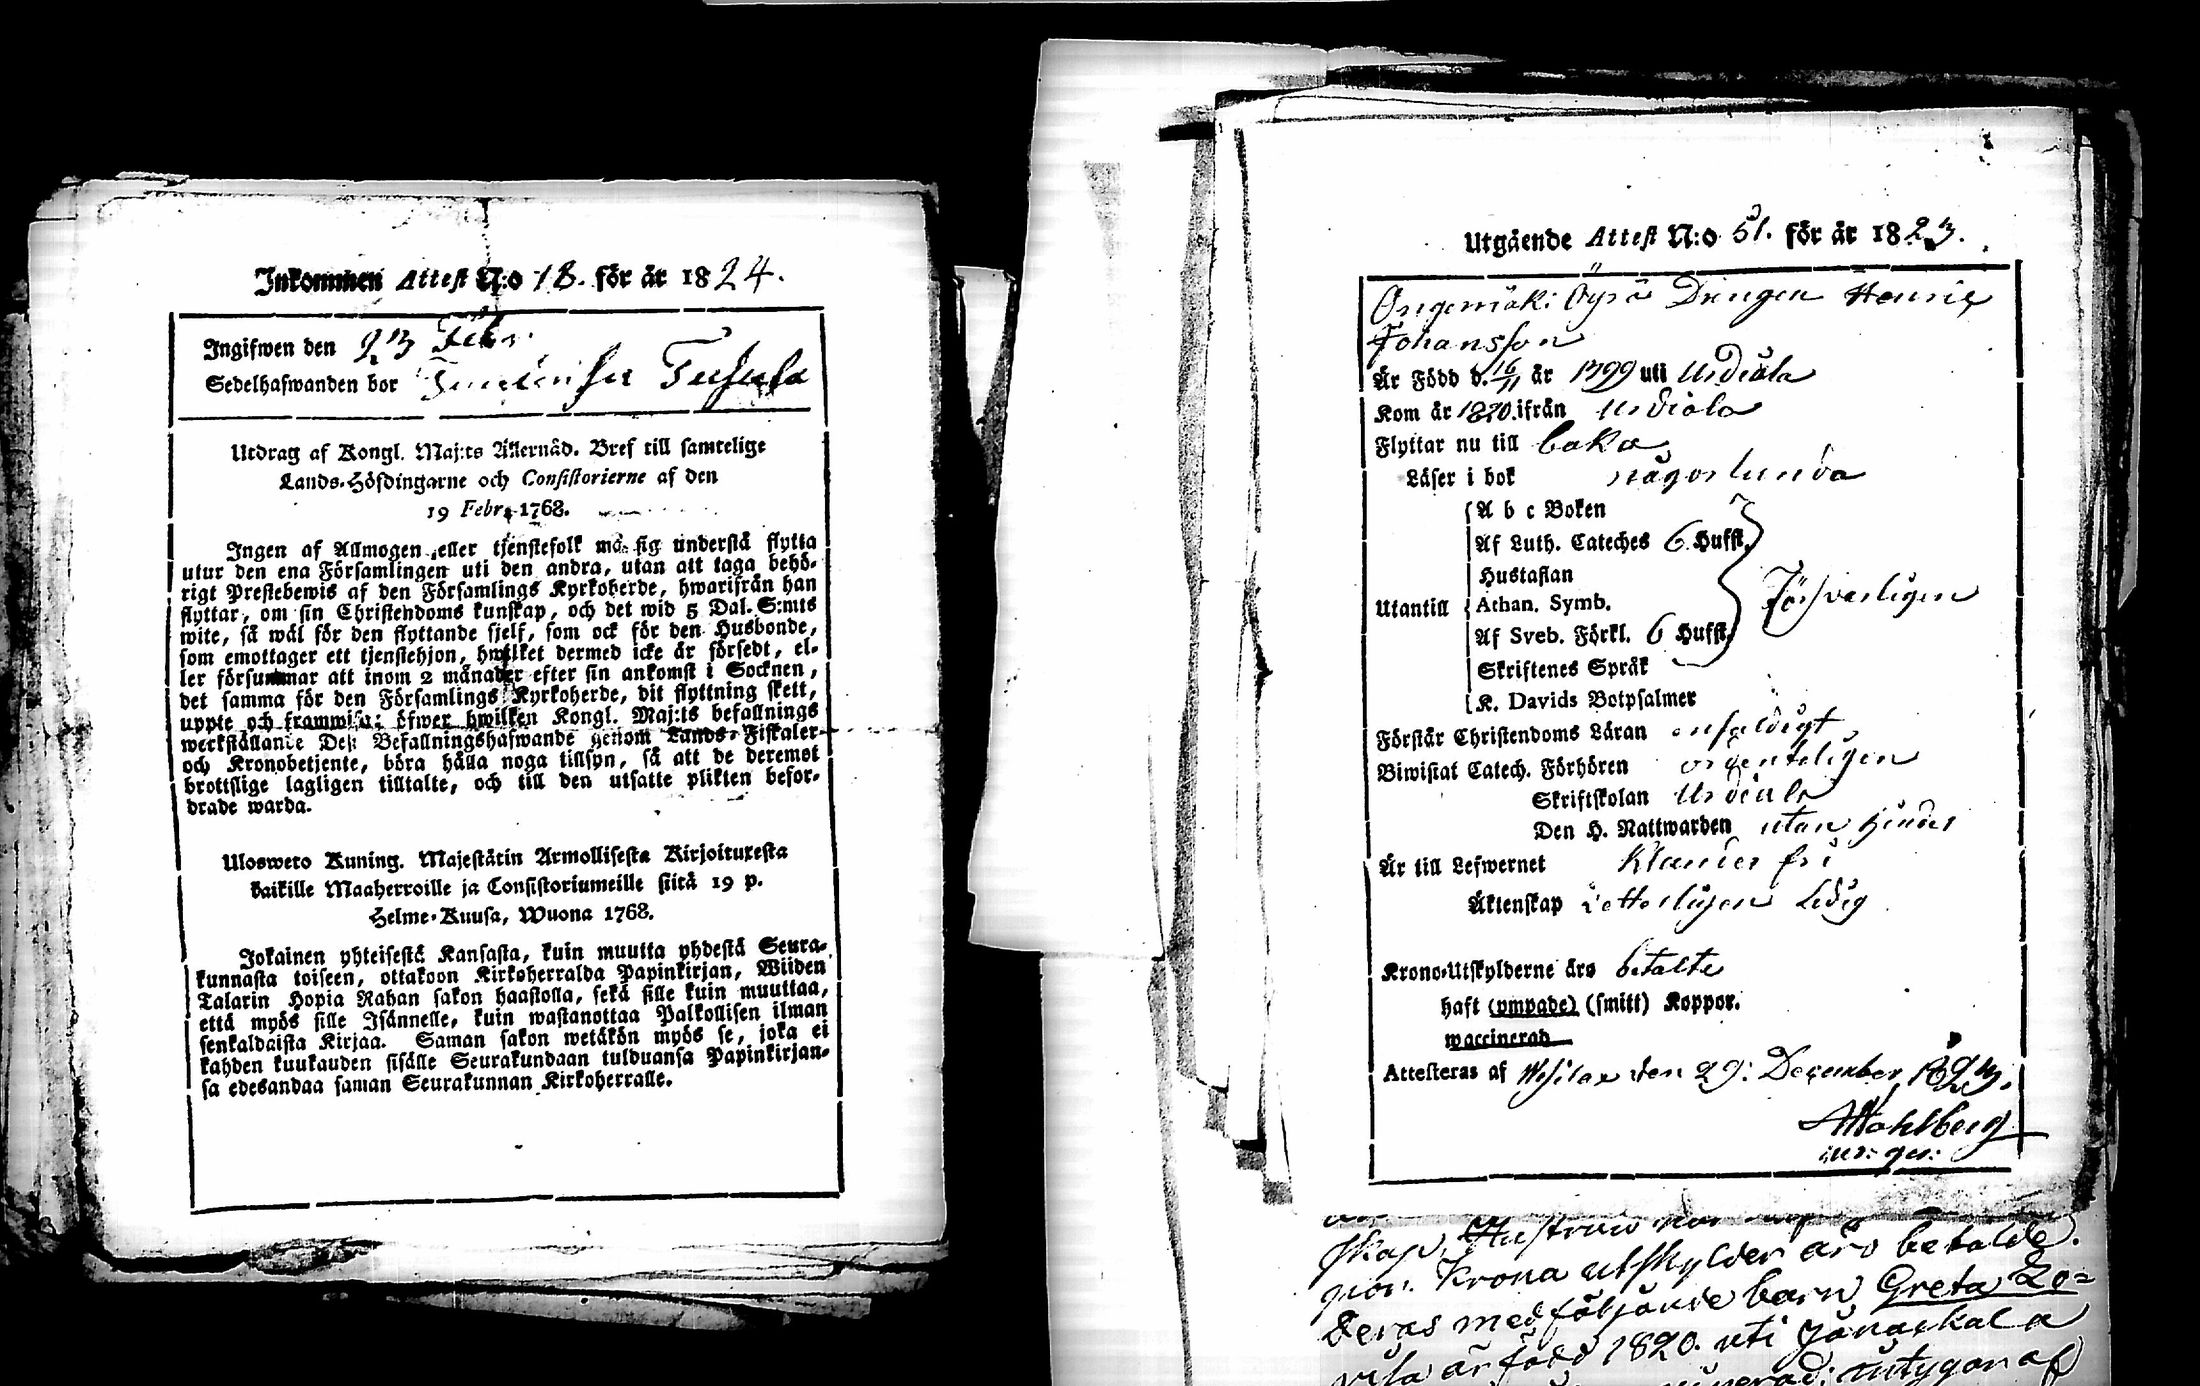 Inkommen Attest N:o 18. för år 1824.
Ingifwen den 23 Febr.
Sedelhafwanden bor
Utdrag af Kongl. Maj:ts Allernåd. Bref till samtelige
Lands-Höfdingarne och Consistorierne af den
19 Febr. 1768.
Ingen af Allmogen eller tjenstefolk må sig understå flytta
utur den ena Församlingen uti den andra, utan att taga behö-
rigt Prestebewis af den Församlings Kyrkoherde, hwarifrån han
flyttar, om sin Christendoms kunskap, och det wid 5 Dal. S:mts
wite, så wäl för den flyttande sjelf, som ock för den Husbonde,
som emottager ett tjenstehjon, hwilket dermed icke är försedt, el-
ler försummar att inom 2 månader efter sin ankomst i Socknen,
det samma för den Församlings Kyrkoherde, dit flyttning skett,
uppte och framwisa; öfwer hwilken Kongl. Maj:ts befallnings
werkställande Deß Befallningshafwande genom Lands-Fiskaler
och Kronobetjente, böra hålla noga tillsyn, så att de deremot
brottslige lagligen tilltalte, och till den utsatte plikten befor-
drade warda.
Ulosweto Kuning. Majestätin Armollisesta Kirjoituxesta
kaikille Maaherroille ja Consistoriumeille siitä 19 p.
Helme-Kuusa, Wuona 1768.
Jokainen yhteisestä Kansasta, kuin muutta yhdestä Seura-
kunnasta toiseen, ottakoon Kirkoherralda Papinkirjan, Wiiden
Talarin Hopia Rahan sakon haastolla, sekä sille kuin muuttaa,
että myös sille Isännelle, kuin wastanottaa Palkollisen ilman
senkaldaista Kirjaa. Saman sakon wetäkön myös se, joka ei
kahden kuukauden sisälle Seurakundaan tulduansa Papinkirjan-
sa edesandaa saman Seurakunnan Kirkoherralle.
Utgående Attest N:o 51. för år 1823.
Drengen Henric
Johansson
Är Född d. 16/11 år 1799 uti Urdiala
Kom år 1820 ifrån Urdiala
Flyttar nu till baka
Läser i bok någorlunda
Utantill
A b c Boken
Af Luth. Cateches 6 Hufst.
Hustaflan
Athan. Symb.
Af Sveb. Förkl. 6 Hufst.
Skriftenes Språk
K. Davids Botpsalmer
Försvarligen
Förstår Christendoms Läran enfaldigt
Biwistat Catech. Förhören ordenteligen
Skriftskolan Urdiala
Den H. Nattwarden utan hinder
Är till Lefwernet Klander fri
Äktenskap Ledig
Krono-Utskylderne äro betalte
haft (ympade) (smitt) Koppor.
waccinerad
Attesteras af Wesilax den 29. December 1823.
AWahlberg
skap, Hustrun
por. Krona utskylder äro betalde.
Deras medföljande barn Greta Lo=
visa är född 1820. uti Janackala